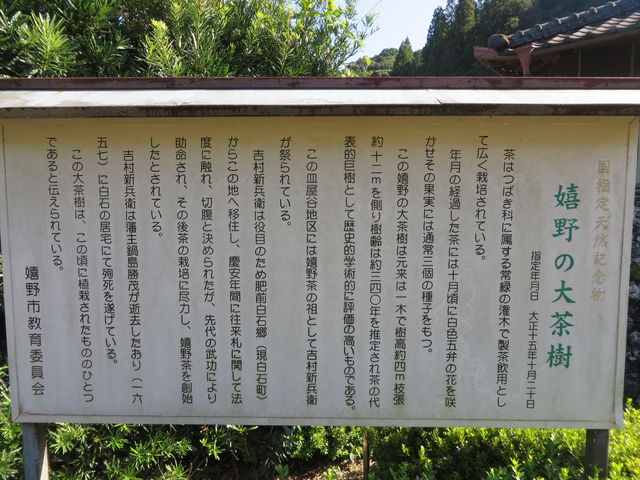 国指定天然記念物
嬉野の大茶樹
指定年月日 大正十五年十月二十日
茶はつばき科に属する常緑の灌木で製茶飲用とし
て広く栽培されている。
年月の経過した茶には十月頃に白色五弁の花を咲
かせその果実には通常三個の種子をもつ。
この嬉野の大茶樹は元来は一木で樹高約四m枝張
約十二mを側り樹齢は約三四〇年を推定され茶の代
表的巨樹として歴史的学術的に評価の高いものである。
この皿屋谷地区には嬉野茶の祖として吉村新兵衛
が祭られている。
吉村新兵衛は役目のため肥前白石郷(現白石町)
からこの地へ移住し、慶安年間に往来札に関して法
度に触れ、切腹と決められたが、先代の武功により
助命され、その後茶の栽培に尽力し、嬉野茶を創始
したとされている。
吉村新兵衛は藩主鍋島勝茂が逝去したおり(一六
五七)に白石の居宅にて殉死を遂げている。
この大茶樹は、この頃に植栽されたもののひとつ
であると伝えられている。
嬉野市教育委員会